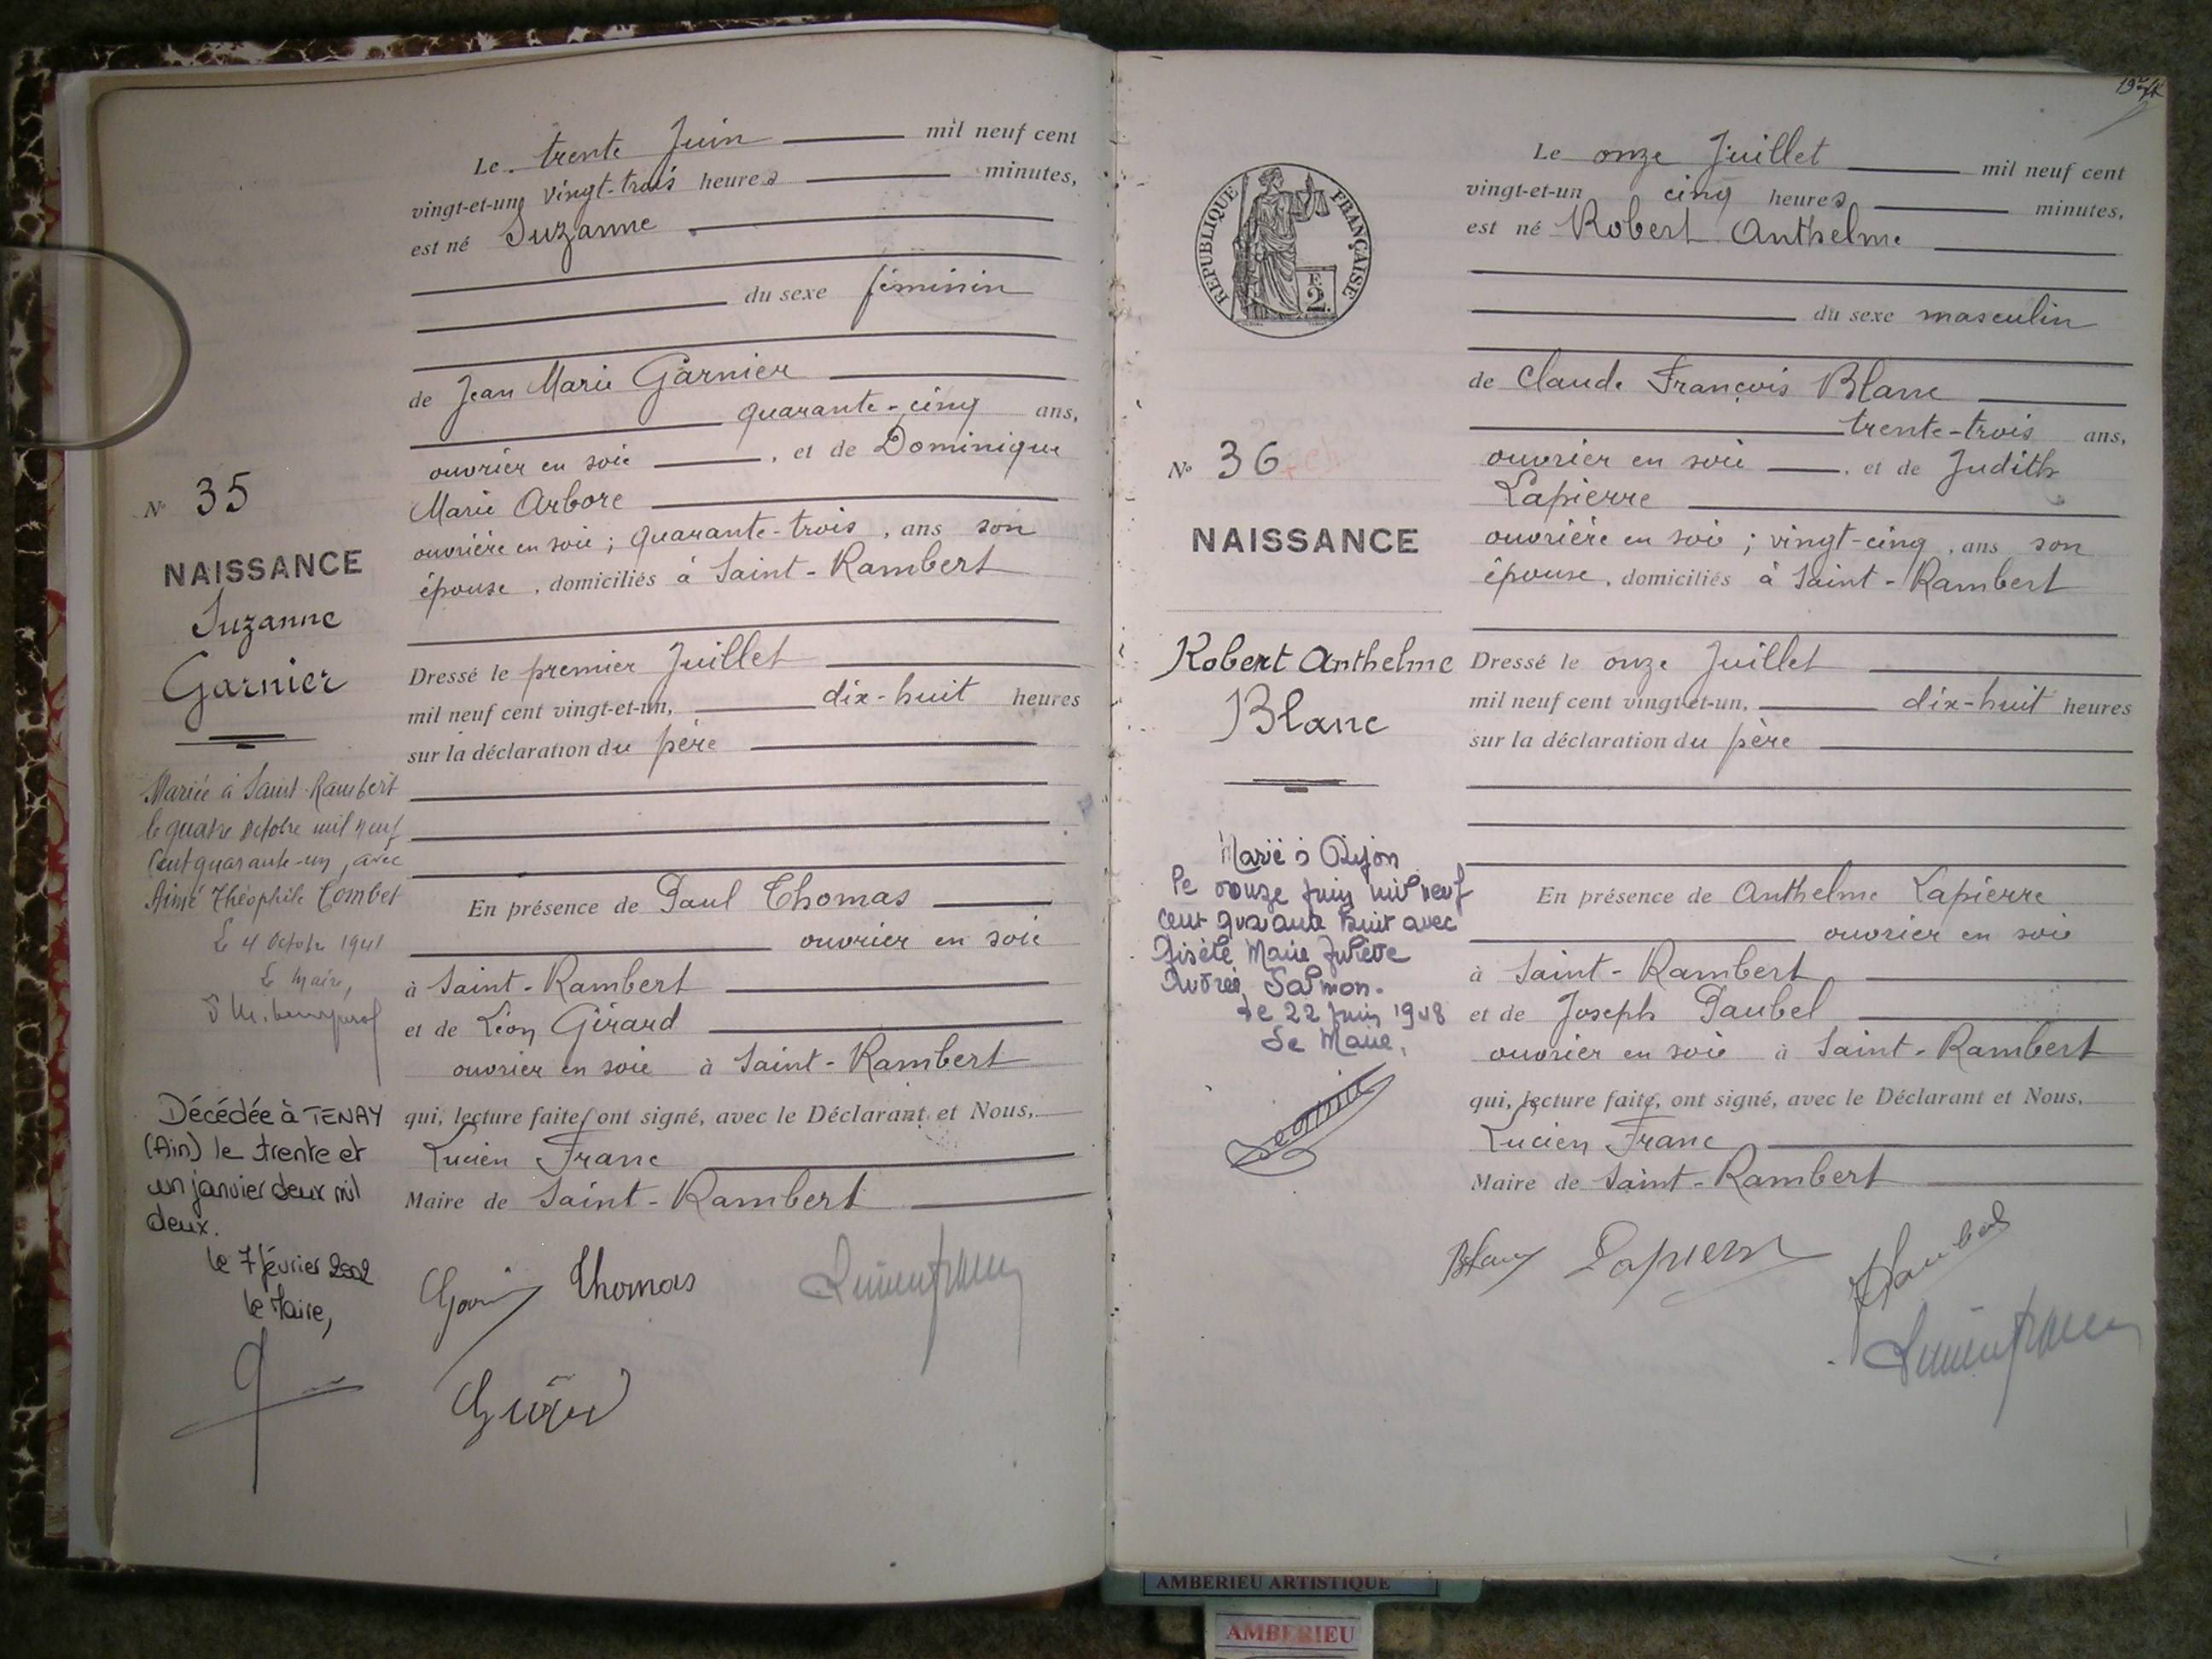 Le trente Juin mil neuf cent
vingt-et-un, vingt-trois heures minutes,
est né Suzanne
du sexe féminin
de Jean Marie Garnier
quarante-cinq ans,
ouvrier en soie , et de Dominique
Marie Arbore
ouvrière en soie ; quarante-trois , ans son
épouse , domiciliés à Saint-Rambert
Dressé le premier Juillet
mil neuf cent vingt-et-un, dix-huit heures
sur la déclaration du père
En présence de Paul Thomas
ouvrier en soie
à Saint-Rambert
et de Léon Girard
ouvrier en soie à Saint-Rambert
qui, lecture faite, ont signé, avec le Déclarant et Nous,
Lucien Franc
Maire de Saint-Rambert
Thomas
No 35
NAISSANCE
Suzanne
Garnier
Mariée à Saint-Rambert
le quatre octobre mil neuf
cent quarante-un, avec
Aimé Théophile Combet
Le 4 Octobre 1941
Le Maire,
Décédée à TENAY
(Ain) le trente et
un janvier deux mil
deux.
le 7 février 2002
le Maire,
RÉPUBLIQUE FRANÇAISE
F.
2.
No 36
NAISSANCE
Robert Anthelme
Blanc
Marié à Dijon
le douze juin mil neuf
cent quarante huit avec
Gisèle Marie Juliette
Andrée Salmon.
Le 22 Juin 1948
Le Maire,
Le onze Juillet mil neuf cent
vingt-et-un cinq heures minutes,
est né Robert Anthelme
du sexe masculin
de Claude François Blanc
trente-trois ans,
ouvrier en soie , et de Judith
Lapierre
ouvrière en soie ; vingt-cinq , ans son
épouse , domiciliés à Saint-Rambert
Dressé le onze Juillet
mil neuf cent vingt-et-un, dix-huit heures
sur la déclaration du père
En présence de Anthelme Lapierre
ouvrier en soie
à Saint-Rambert
et de Joseph Paubel
ouvrier en soie à Saint-Rambert
qui, lecture faite, ont signé, avec le Déclarant et Nous,
Lucien Franc
Maire de Saint-Rambert
Blanc Lapierre
AMBERIEU ARTISTIQUE
AMBERIEU